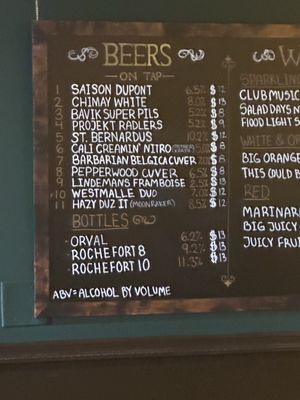 BEERS
ON TAP
1 SAISON DUPONT 6.5% $12
2 CHIMAY WHITE 8.0% $13
3 BAVIK SUPER PILS 5.2% $8
4 PROJEKT RADLERS $9
5 ST. BERNARDUS 10.2% $12
6 CALI CREAMIN' NITRO $8
7 BARBARIAN BELGICA CUVER $8
8 PEPPERWOOD CUVER 6.5% $8
9 LINDEMANS FRAMBOISE 2.5% $13
10 WESTMALLE DUO 7.0% $12
11 HAZY DUZ IT (MOONRAKER) 8.5% $12
BOTTLES
• ORVAL 6.2% $13
• ROCHEFORT 8 9.2% $13
• ROCHEFORT 10 11.3% $13
ABV = ALCOHOL BY VOLUME
W
SPARKLIN
CLUB MUSIC
SALAD DAYS N
FLOOD LIGHT S
WHITE & O
BIG ORANGE
THIS COULD B
RED
MARINARA
BIG JUICY
JUICY FRUI